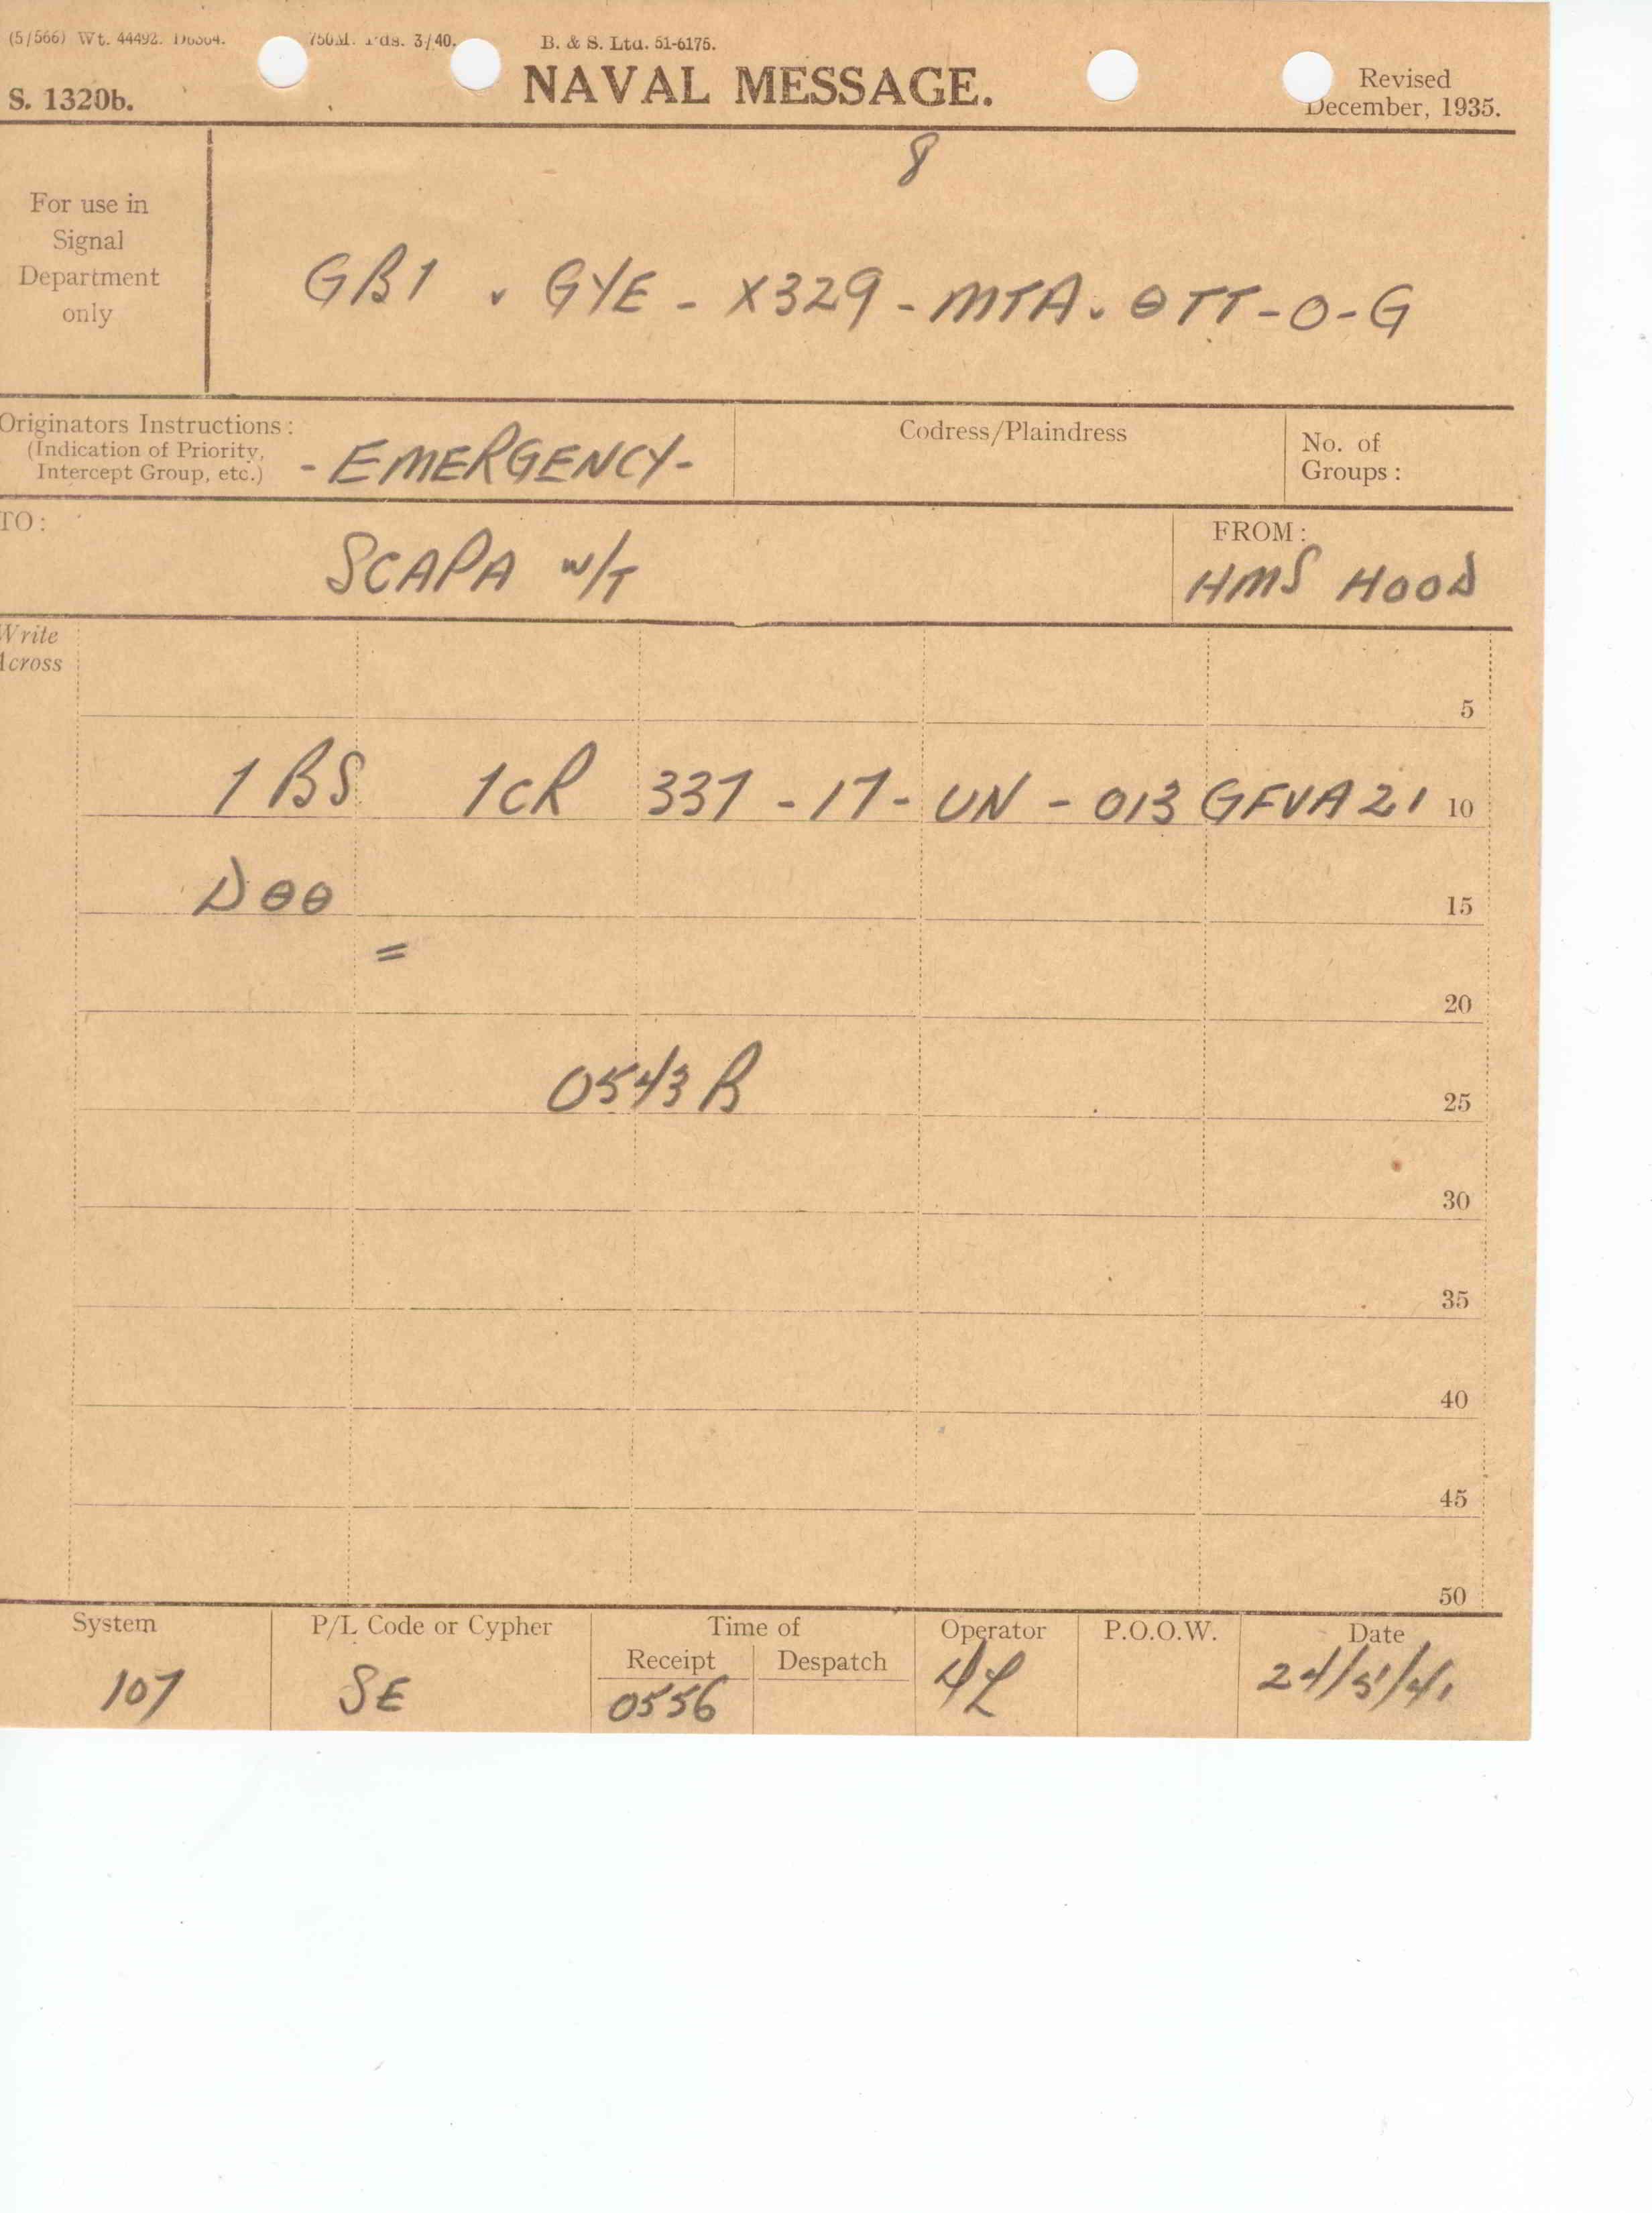 (5/566) Wt. 44492. D6304. 750M. Pds. 3/40. B. & S. Ltd. 51-6175.
S. 1320b. NAVAL MESSAGE. Revised December, 1935.
8
For use in
Signal
Department
only
GB1 . GYE - X329 - MTA . θTT - O - G
Originators Instructions:
(Indication of Priority,
Intercept Group, etc.)
- EMERGENCY -
Codress/Plaindress
No. of
Groups:
TO:
SCAPA W/T
FROM:
HMS HOOD
Write
Across
5
1 BS 1CR 337 - 17 - UN - 013 GFVA 21 10
Dθθ 15
=
20
0543 B 25
30
35
40
45
50
System P/L Code or Cypher Time of Operator P.O.O.W. Date
Receipt Despatch
107 SE 0556 24/5/41